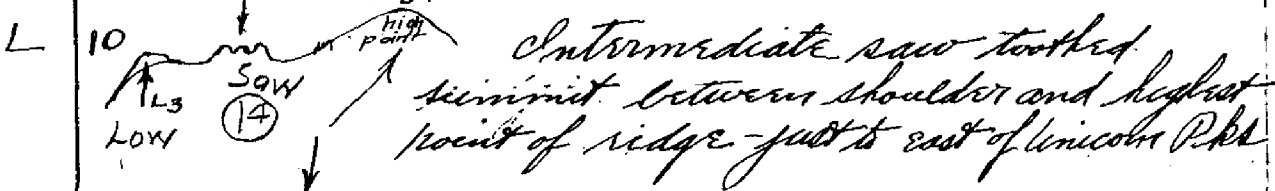 L 10 high point Intermediate saw toothed
L3 Saw summit between shoulder and highest
Low 14 point of ridge - just to east of Unicorn Pks